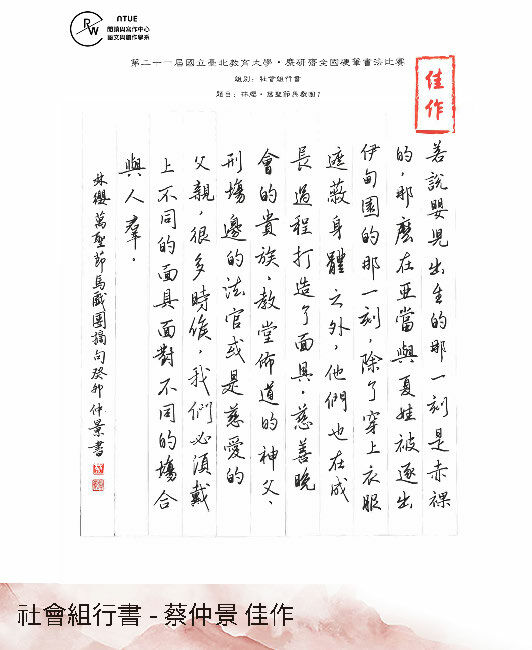 NTUE
閱讀與寫作中心
語文與創作學系
CRW
第二十一屆國立臺北教育大學・麋研齋全國硬筆書法比賽
組別：社會組行書
題目：林纓・萬聖節馬戲團1
佳作
若說嬰兒出生的那一刻是赤裸
的，那麼在亞當與夏娃被逐出
伊甸園的那一刻，除了穿上衣服
遮蔽身體之外，他們也在成
長過程打造了面具。慈善晚
會的貴族、教堂佈道的神父、
刑場邊的法官或是慈愛的
父親，很多時候，我們必須戴
上不同的面具面對不同的場合
與人羣。
林纓萬聖節馬戲團摘句癸卯仲景書
社會組行書 - 蔡仲景 佳作